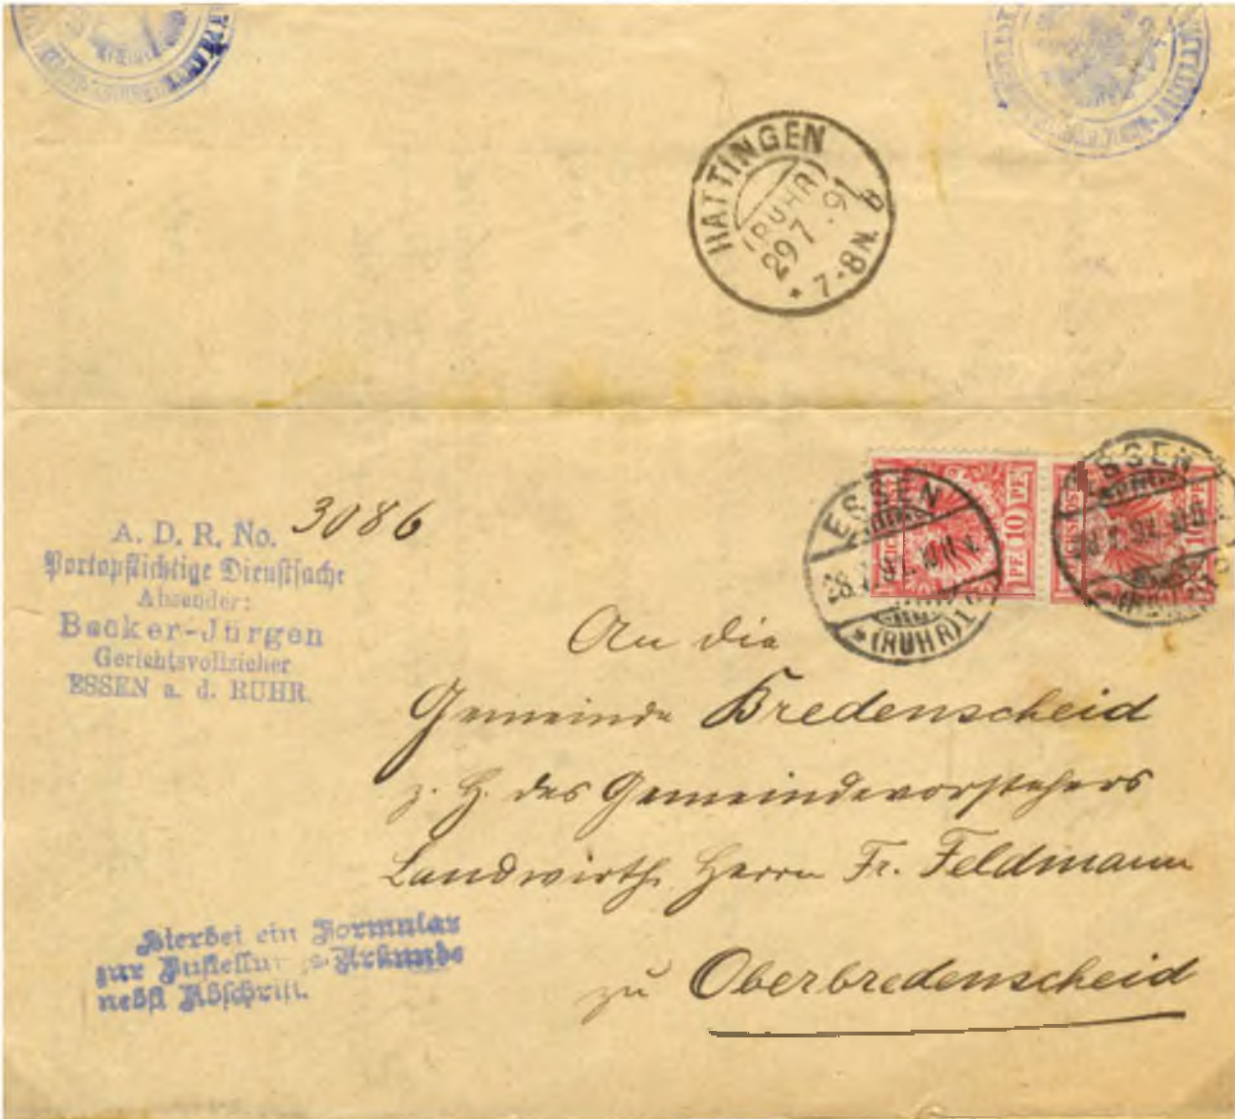 HATTINGEN
(RUHR)
29 7. 91
* 7-8N. b
ESSEN
* (RUHR) 1
PF. 10 PF.
ESSEN
A. D. R. No. 3086
Portopflichtige Dienstsache
Absender:
Becker-Jürgen
Gerichtsvollzieher
ESSEN a. d. RUHR.
An die
Gemeinde Bredenscheid
z. H. des Gemeindevorstehers
Landwirth Herrn Fr. Feldmann
zu Oberbredenscheid
Hierbei ein Formular
zur Zustellungs-Urkunde
nebst Abschrift.